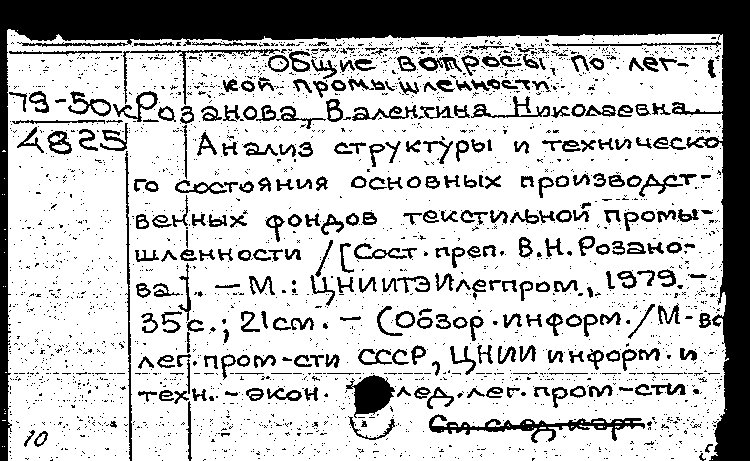 Общие вопросы по лег-
кой промышленности.
79-50к Розанова, Валентина Николаевна.
4825 Анализ структуры и техническо
го состояния основных производст-
венных фондов текстильной промы-
шленности / [Сост. преп. В.Н. Розано-
ва]. — М.: ЦНИИТЭИлегпром, 1979. —
35 с.; 21 см. — (Обзор. информ. / М-во
лег. пром-сти СССР, ЦНИИ информ. и
техн. - экон. лег. пром-сти.
См. след. карт.
10